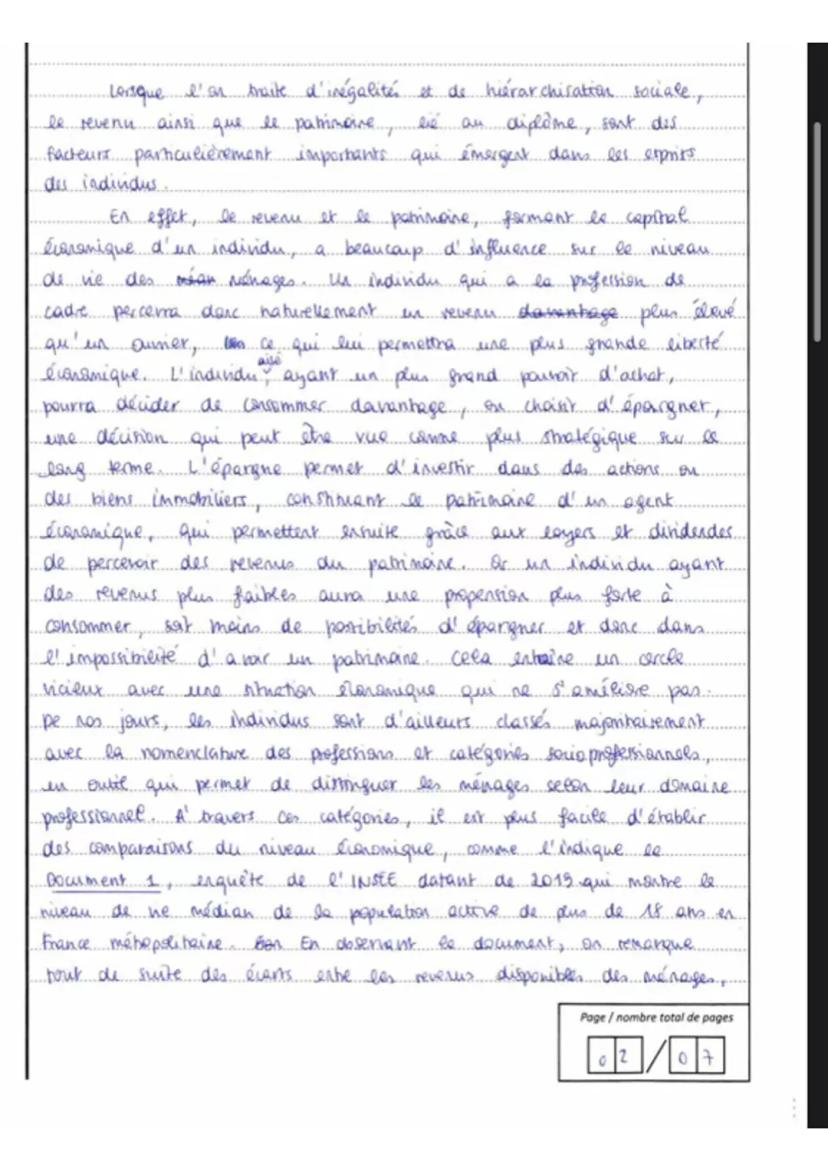 Lorsque l'on traite d'inégalités et de hiérarchisation sociale,
le revenu ainsi que le patrimoine, lié au diplôme, sont des
facteurs particulièrement importants qui émergent dans les esprits
des individus.
En effet, le revenu et le patrimoine, formant le capital
économique d'un individu, a beaucoup d'influence sur le niveau
de vie des ménages. Un individu qui a la profession de
cadre percevra donc naturellement un revenu davantage plus élevé
qu'un ouvrier, ce qui lui permettra une plus grande liberté
économique. L'individu aisé, ayant un plus grand pouvoir d'achat,
pourra décider de consommer davantage, ou choisir d'épargner,
une décision qui peut être vue comme plus stratégique sur le
long terme. L'épargne permet d'investir dans des actions ou
des biens immobiliers, constituant le patrimoine d'un agent
économique, qui permettent ensuite grâce aux loyers et dividendes
de percevoir des revenus du patrimoine. Or un individu ayant
des revenus plus faibles aura une propension plus forte à
consommer, soit moins de possibilités d'épargner et donc dans
l'impossibilité d'avoir un patrimoine. Cela entraîne un cercle
vicieux avec une situation économique qui ne s'améliore pas.
De nos jours, les individus sont d'ailleurs classés majoritairement
avec la nomenclature des professions et catégories socioprofessionnels,
un outil qui permet de distinguer les ménages selon leur domaine
professionnel. A travers ces catégories, il est plus facile d'établir
des comparaisons du niveau économique, comme l'indique le
Document 1, enquête de l'INSEE datant de 2019 qui montre le
niveau de vie médian de la population active de plus de 18 ans en
France métropolitaine. En observant le document, on remarque
tout de suite des écarts entre les revenus disponibles des ménages,
Page / nombre total de pages
02 / 07